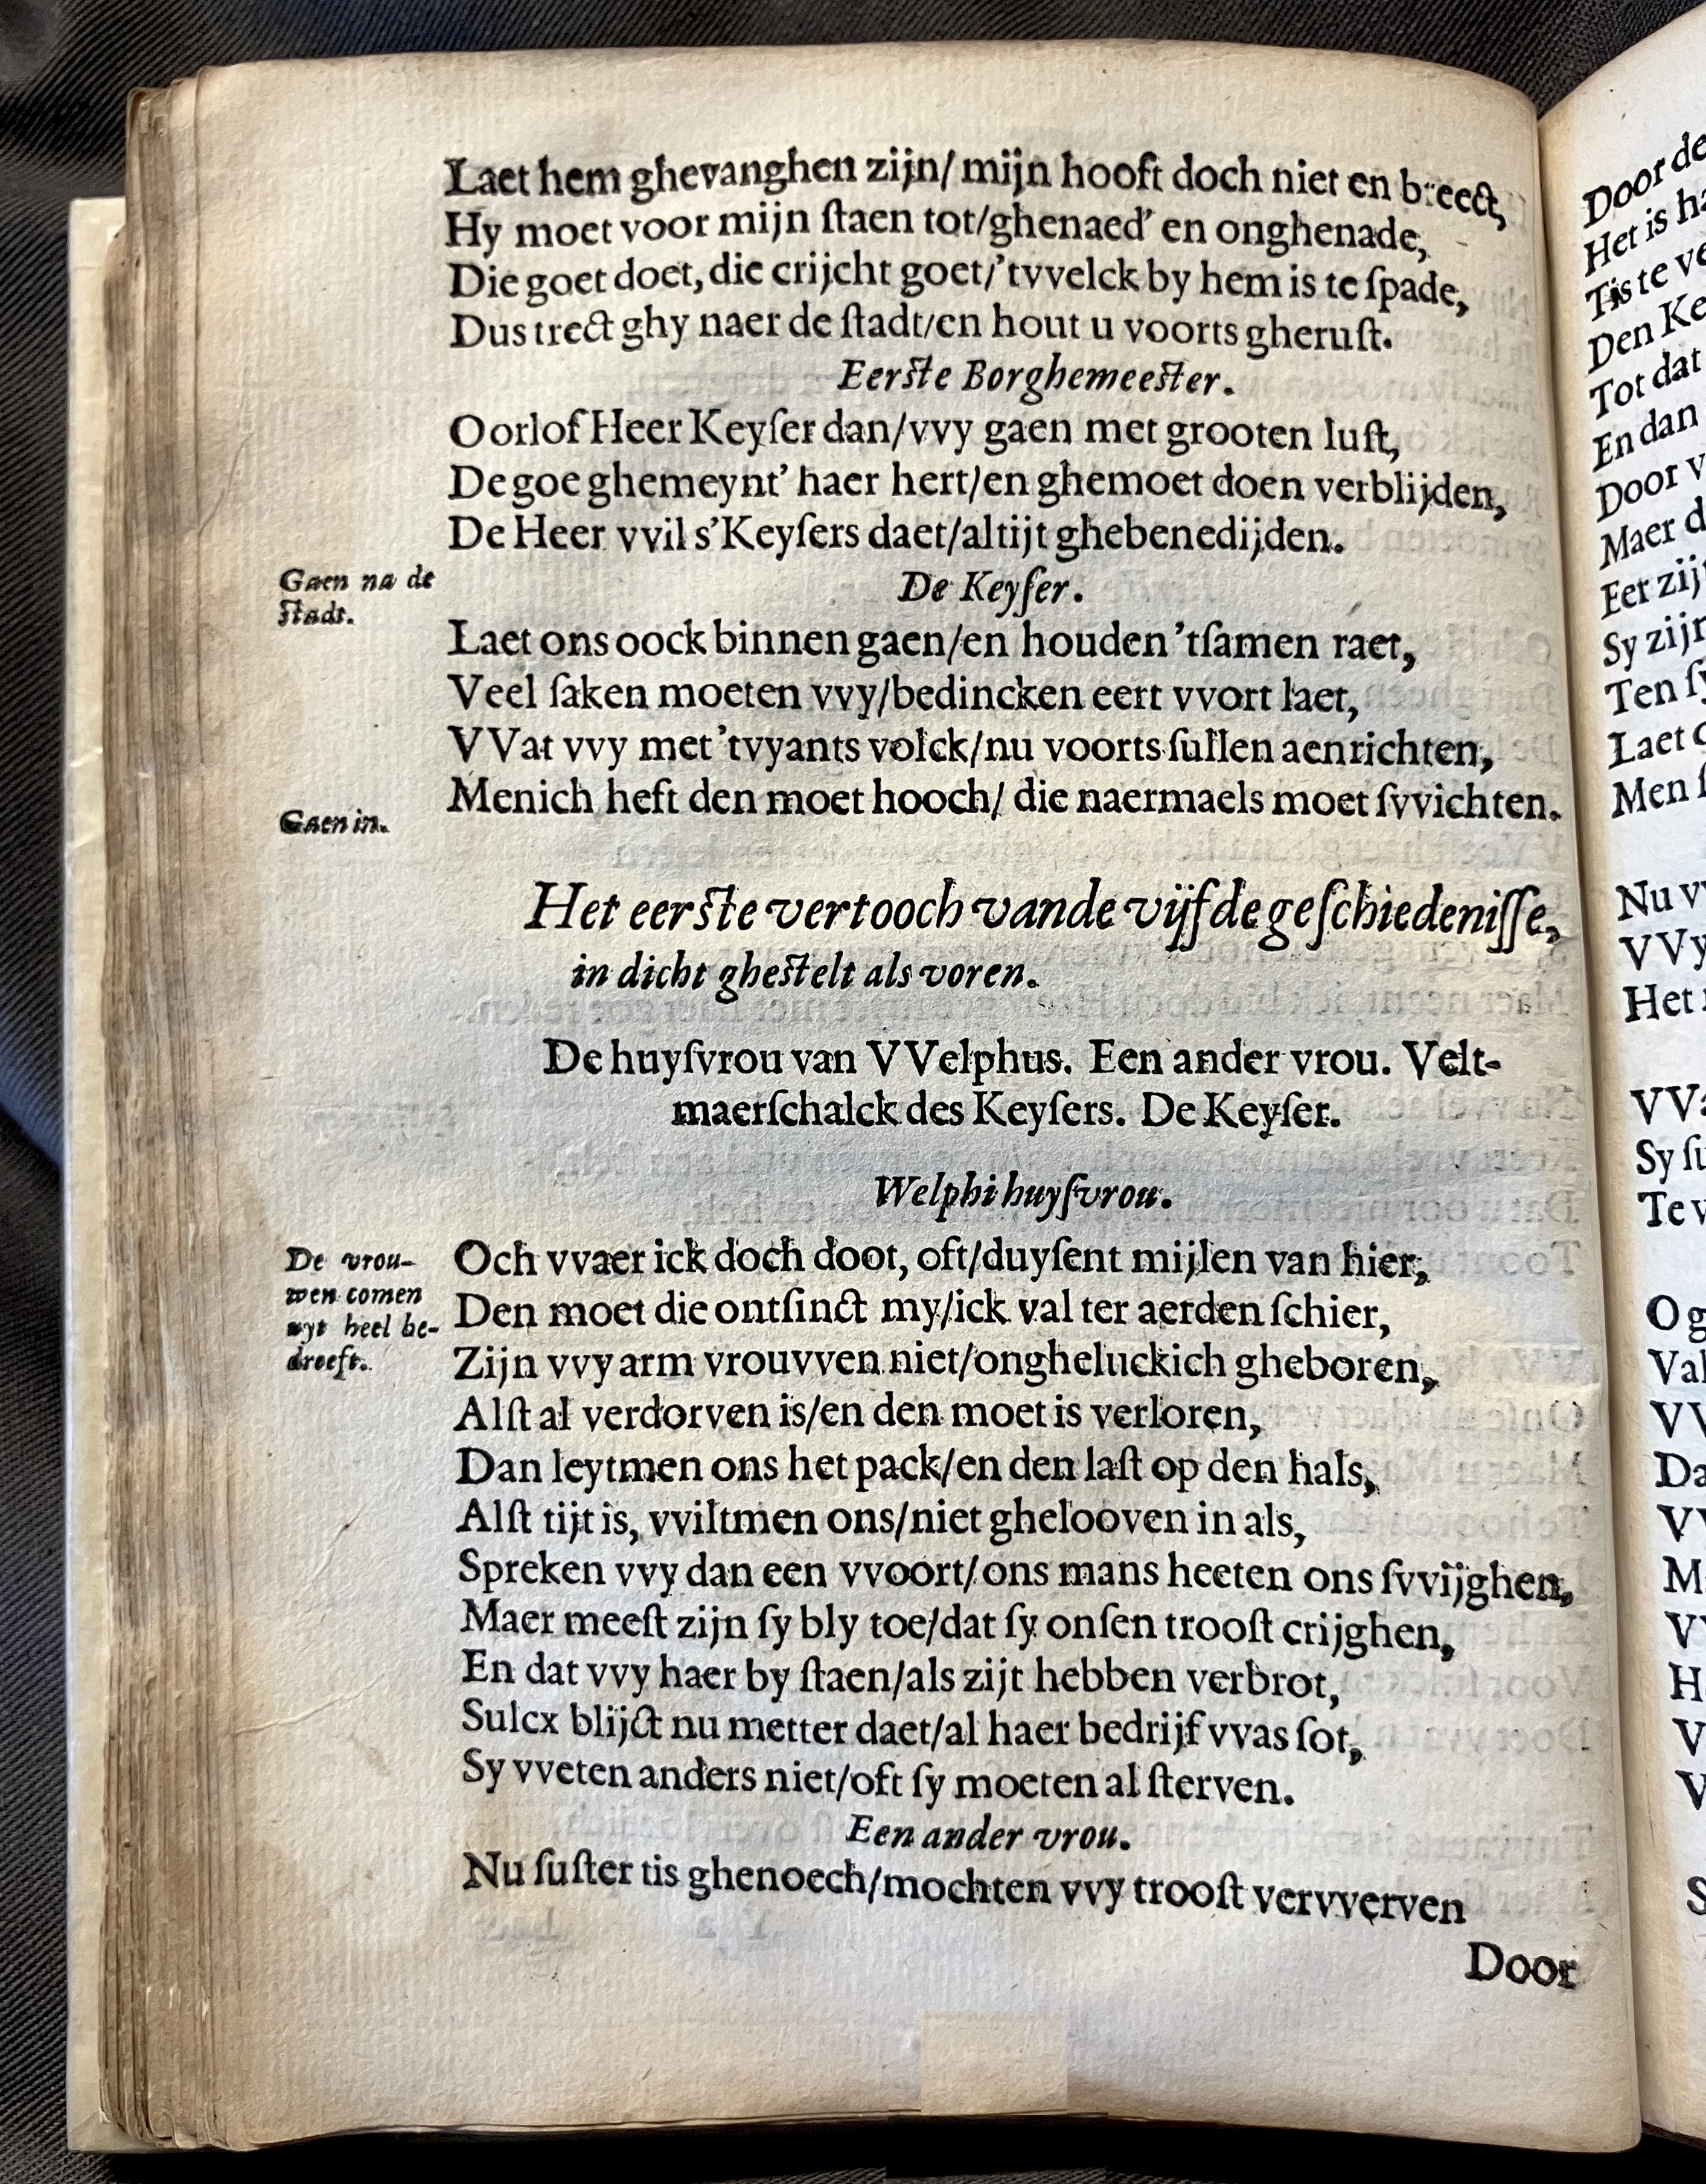 Laet hem ghevanghen zijn/ mijn hooft doch niet en breect,
Hy moet voor mijn ſtaen tot/ghenaed' en onghenade,
Die goet doet, die crijcht goet/'tvvelck by hem is te ſpade,
Dus trect ghy naer de ſtadt/en hout u voorts gheruſt.
Eerſte Borghemeeſter.
Oorlof Heer Keyſer dan/vvy gaen met grooten luſt,
De goe ghemeynt' haer hert/en ghemoet doen verblijden,
De Heer vvil s'Keyſers daet/altijt ghebenedijden.
Gaen na de
ſtadt.
De Keyſer.
Laet ons oock binnen gaen/en houden 'tſamen raet,
Veel ſaken moeten vvy/bedincken eert vvort laet,
VVat vvy met 'tvyants volck/nu voorts ſullen aenrichten,
Menich heft den moet hooch/ die naermaels moet ſvvichten.
Gaen in.
Het eerſte vertooch vande vijfde geſchiedeniſſe,
in dicht gheſtelt als voren.
De huyſvrou van VVelphus. Een ander vrou. Velt-
maerſchalck des Keyſers. De Keyſer.
Welphi huyſvrou.
De vrou-
wen comen
uyt heel be-
droeft.
Och vvaer ick doch doot, oft/duyſent mijlen van hier,
Den moet die ontſinct my/ick val ter aerden ſchier,
Zijn vvy arm vrouvven niet/ongheluckich gheboren,
Alſt al verdorven is/en den moet is verloren,
Dan leytmen ons het pack/en den laſt op den hals,
Alſt tijt is, vviltmen ons/niet ghelooven in als,
Spreken vvy dan een vvoort/ons mans heeten ons ſvvijghen,
Maer meeſt zijn ſy bly toe/dat ſy onſen trooſt crijghen,
En dat vvy haer by ſtaen/als zijt hebben verbrot,
Sulcx blijct nu metter daet/al haer bedrijf vvas ſot,
Sy vveten anders niet/oft ſy moeten al ſterven.
Een ander vrou.
Nu ſuſter tis ghenoech/mochten vvy trooſt vervverven
Door
Door de
Het is
Tis te
Den
Tot dat
En dan
Door
Maer
Eer
Sy
Ten
Laet
Men
Nu
VVy
Het
Sy
Te
O